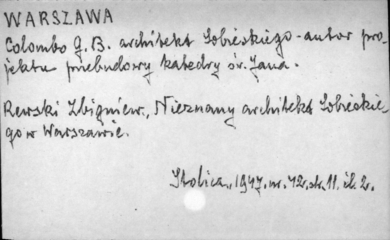 WARSZAWA
Colombo G.B. architekt Sobieskiego - autor pro
jektu przebudowy katedry św. Jana.
Rewski Zbigniew., Nieznany architekt Sobieskie-
go w Warszawie.
Stolica., 1947. nr. 42. st. 11. il. 2.